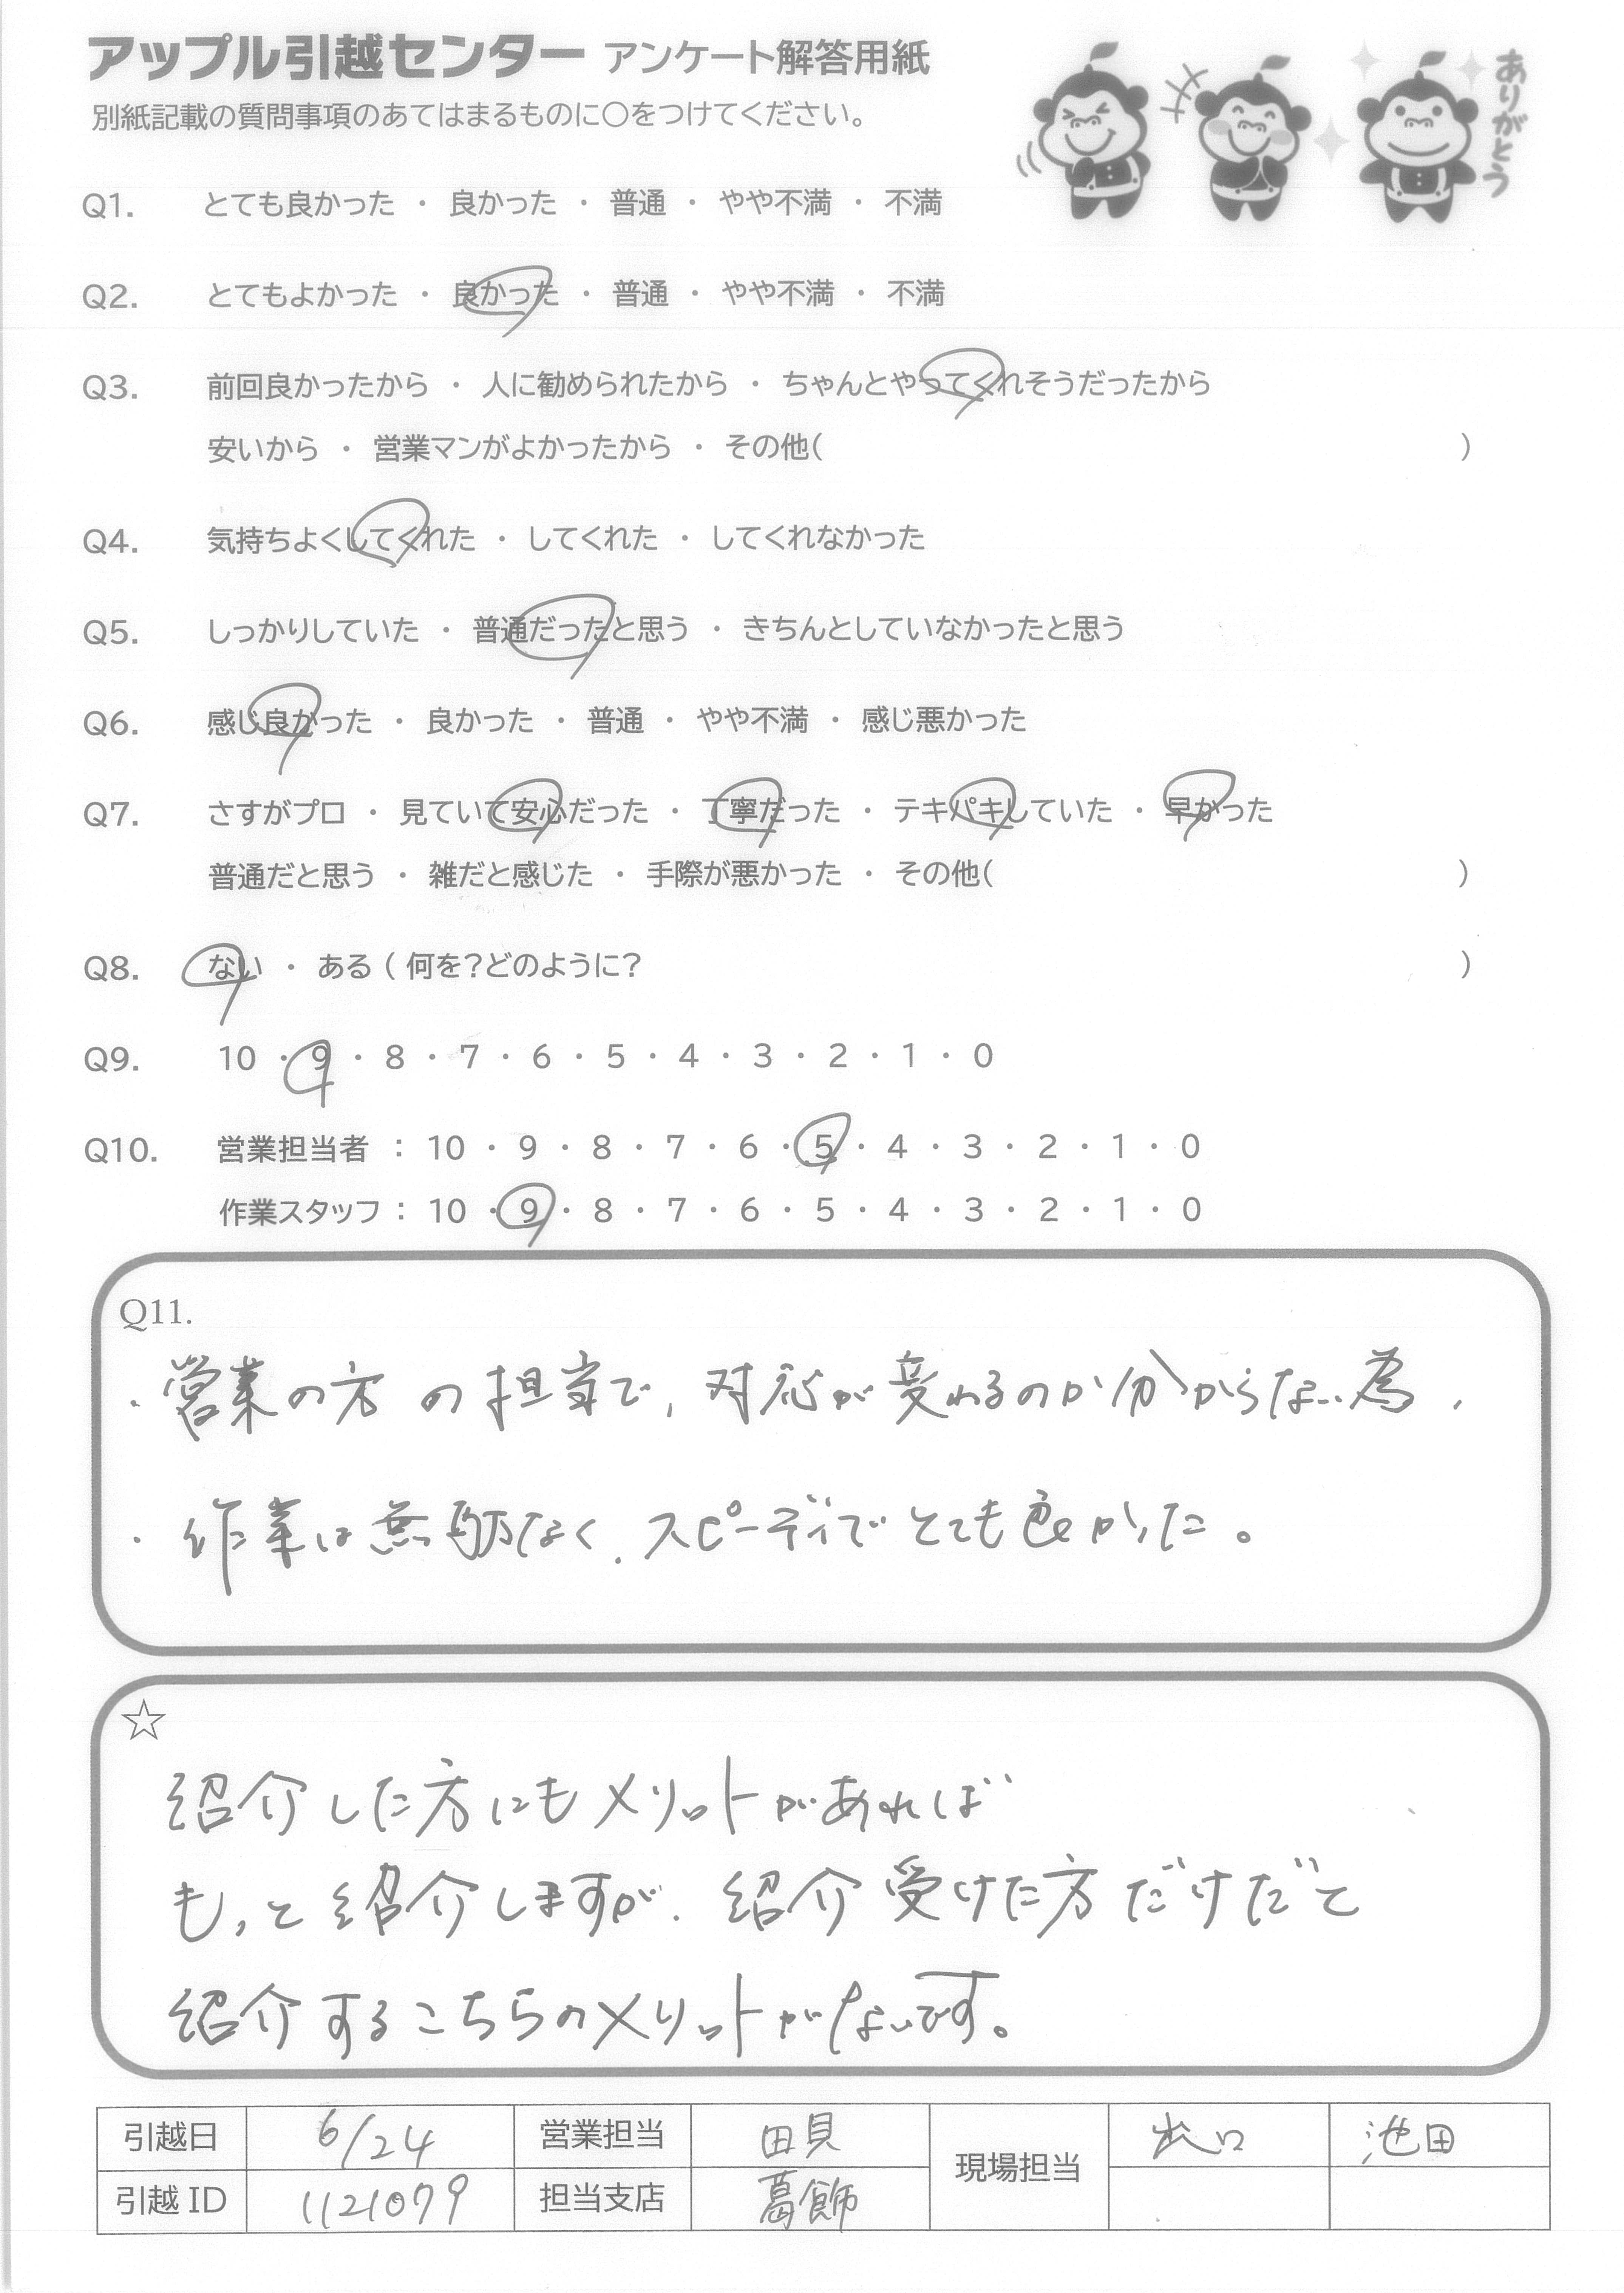 アップル引越センター アンケート解答用紙
別紙記載の質問事項のあてはまるものに○をつけてください。
ありがとう
Q1. とても良かった ・ 良かった ・ 普通 ・ やや不満 ・ 不満
Q2. とてもよかった ・ 良かった ・ 普通 ・ やや不満 ・ 不満
Q3. 前回良かったから ・ 人に勧められたから ・ ちゃんとやってくれそうだったから
安いから ・ 営業マンがよかったから ・ その他( )
Q4. 気持ちよくしてくれた ・ してくれた ・ してくれなかった
Q5. しっかりしていた ・ 普通だったと思う ・ きちんとしていなかったと思う
Q6. 感じ良かった ・ 良かった ・ 普通 ・ やや不満 ・ 感じ悪かった
Q7. さすがプロ ・ 見ていて安心だった ・ 丁寧だった ・ テキパキしていた ・ 早かった
普通だと思う ・ 雑だと感じた ・ 手際が悪かった ・ その他( )
Q8. ない ・ ある ( 何を?どのように? )
Q9. 10 ・ 9 ・ 8 ・ 7 ・ 6 ・ 5 ・ 4 ・ 3 ・ 2 ・ 1 ・ 0
Q10. 営業担当者 : 10 ・ 9 ・ 8 ・ 7 ・ 6 ・ 5 ・ 4 ・ 3 ・ 2 ・ 1 ・ 0
作業スタッフ : 10 ・ 9 ・ 8 ・ 7 ・ 6 ・ 5 ・ 4 ・ 3 ・ 2 ・ 1 ・ 0
Q11.
・営業の方の担当で、対応が変わるのか分からない為、
・作業は無駄なく、スピーディでとても良かった。
☆
紹介した方にもメリットがあれば
もっと紹介しますが、紹介受けた方だけだと
紹介するこちらのメリットがないです。
引越日 6/24 営業担当 田貝 現場担当 出口 池田
引越 ID 1121079 担当支店 葛飾